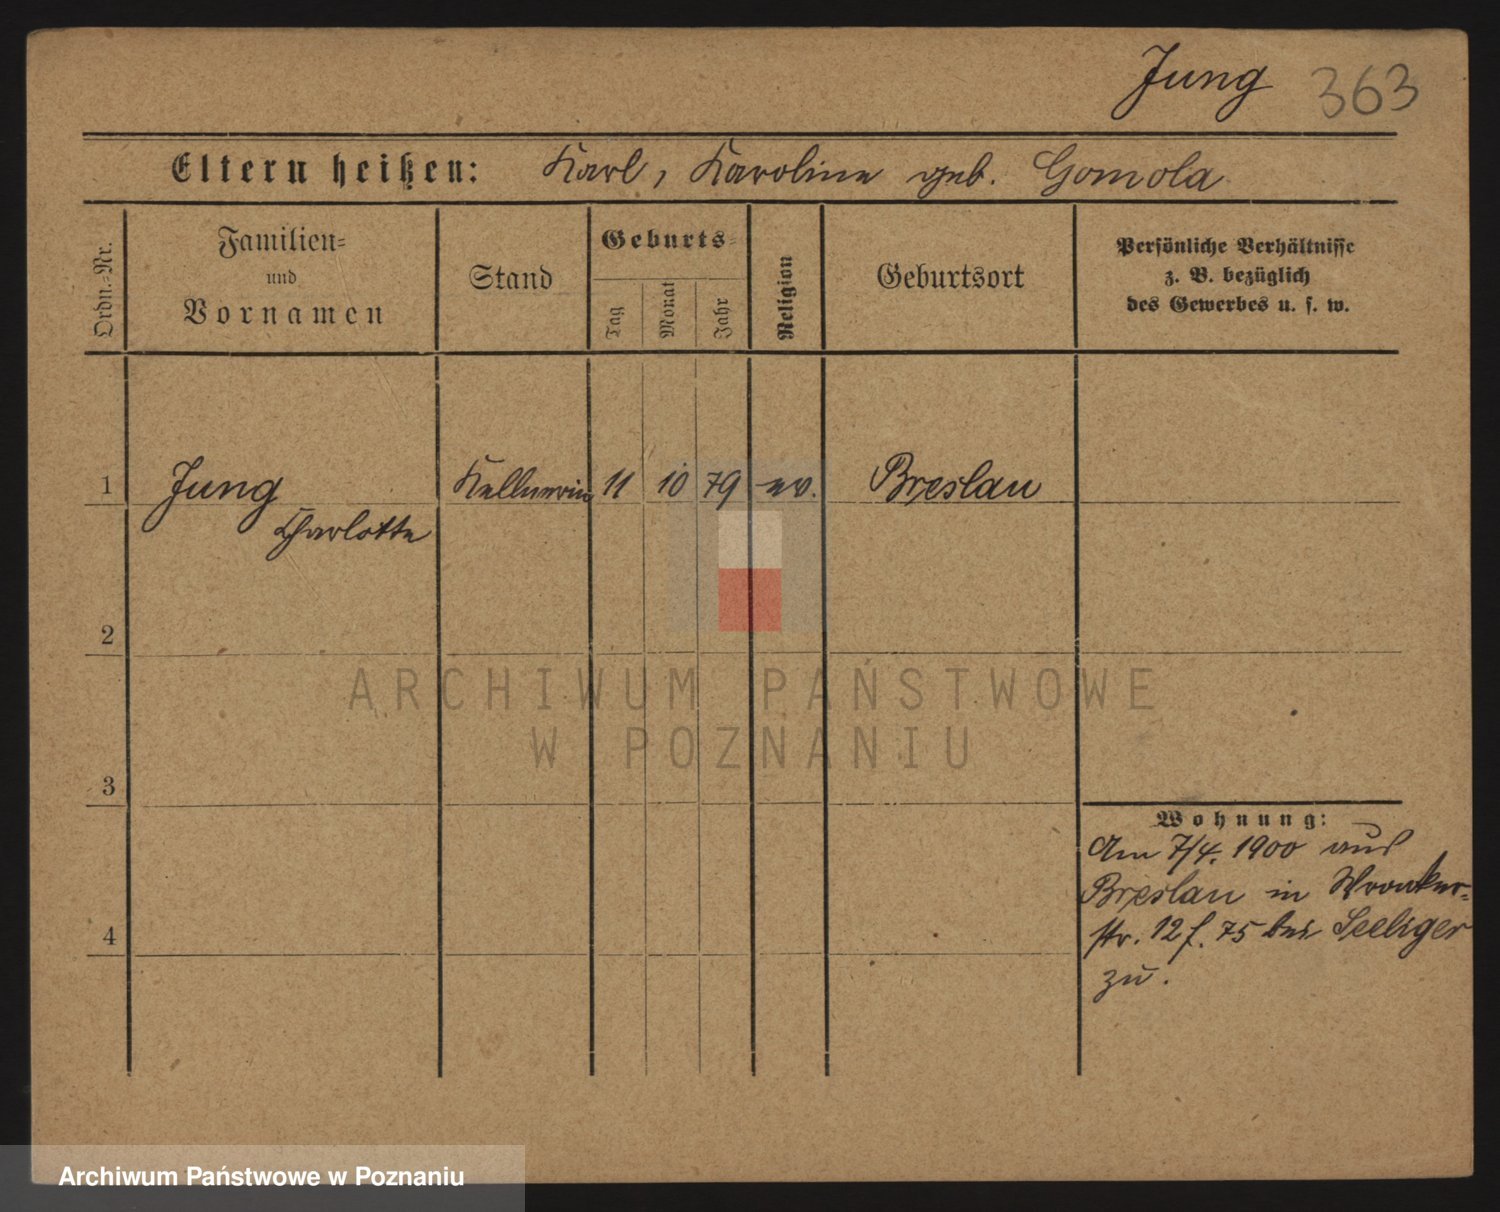 Jung 363
Eltern heißen: Karl, Karoline geb. Gomola
Ordn.-Nr.
Familien-
und
Vornamen
Stand
Geburts-
Tag
Monat
Jahr
Religion
Geburtsort
Persönliche Verhältnisse
z. B. bezüglich
des Gewerbes u. s. w.
1 Jung Kellnerin 11 10 79 ev. Breslau
Charlotte
2
3
4
Wohnung:
Am 7/4. 1900 aus
Breslau in Wronker-
str. 12 f. 75 bei Seeliger
zu.
ARCHIWUM PAŃSTWOWE
W POZNANIU
Archiwum Państwowe w Poznaniu